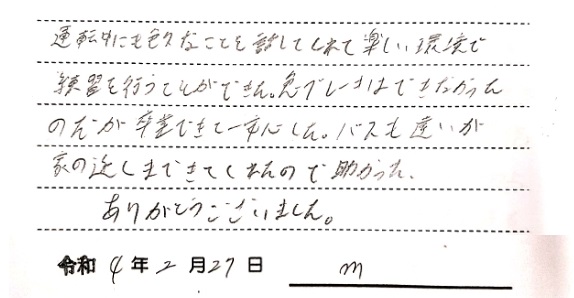 運転中にも色々なことを話してくれて楽しい環境で
練習を行うことができた。急ブレーキはできなかった
のだが卒業できて一安心した。バスも遠いが
家の近くまできてくれたので助かった、
ありがとうございました。
令和 4 年 2 月 27 日 m